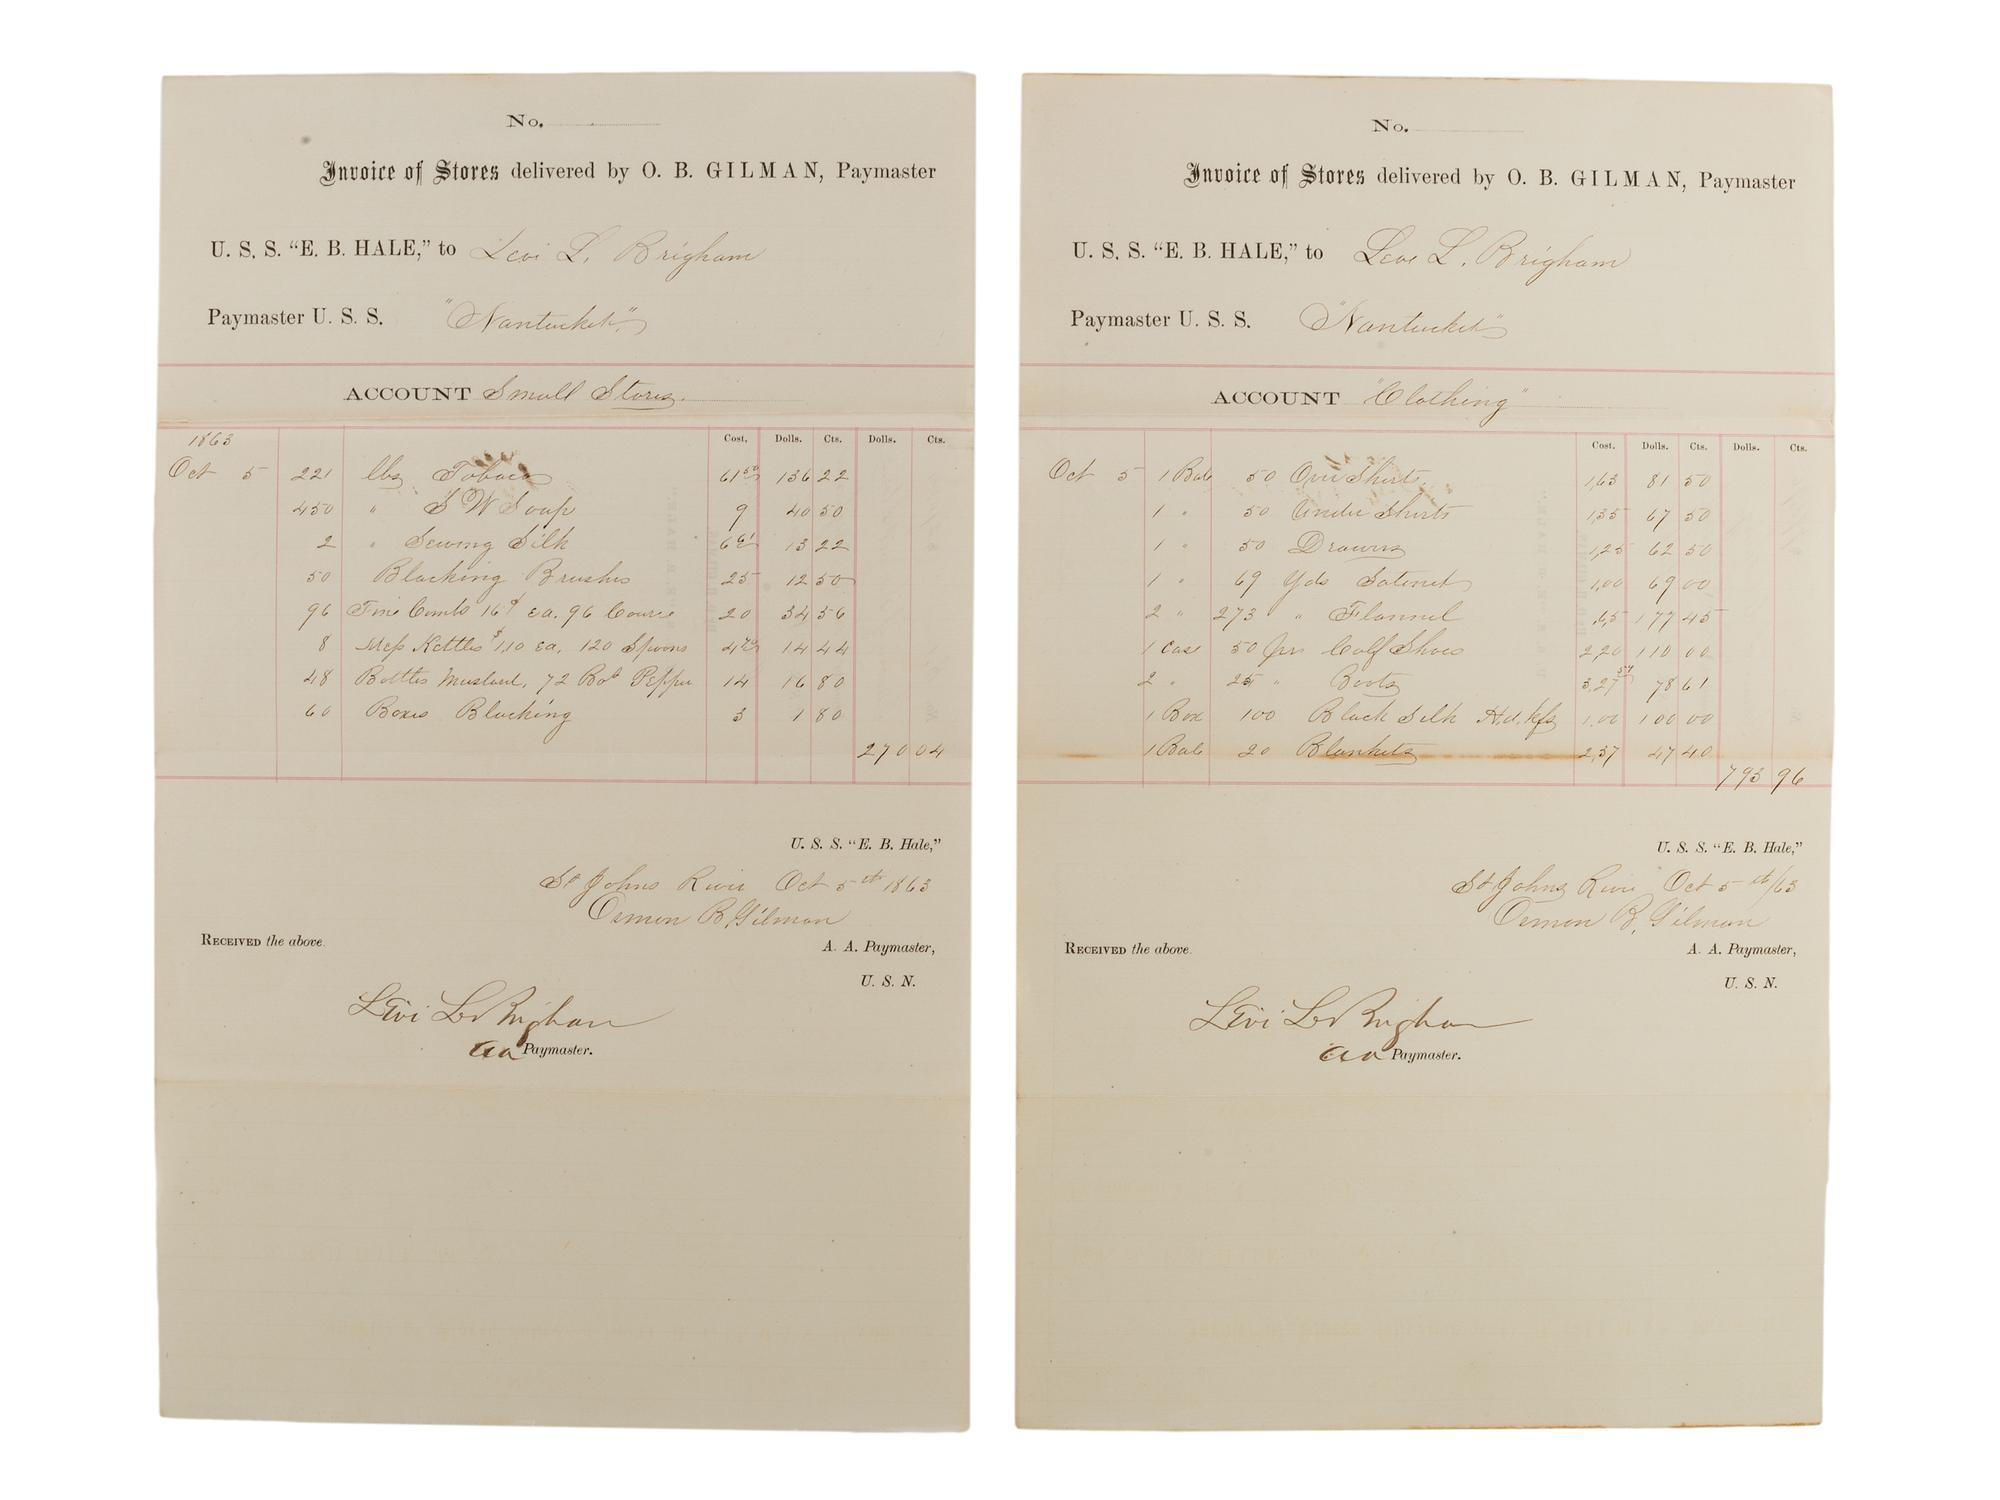 No.
Invoice of Stores delivered by O. B. GILMAN, Paymaster
U. S. S. “E. B. HALE,” to Levi L. Brigham
Paymaster U. S. S. "Nantucket"
ACCOUNT Small Stores.
1863 Cost. Dolls. Cts. Dolls. Cts.
Oct 5 221 lbs Tobacco 61 136 22
450 " S W Soap 9 40 50
2 " Sewing Silk 661 13 22
50 Blacking Brushes 25 12 50
96 Fine Combs 16¢ ea. 96 Course 20 34 56
8 Mess Kettles $1,10 ea, 120 Spoons 14 44
48 Bottles Mustard, 72 Bot Pepper 14 16 80
60 Boxes Blacking 3 1 80
270 04
U. S. S. “E. B. Hale,”
St Johns River Oct 5th 1863
Osmon B. Gilman
RECEIVED the above.
A. A. Paymaster,
U. S. N.
Levi L Brigham
aa Paymaster.
No.
Invoice of Stores delivered by O. B. GILMAN, Paymaster
U. S. S. “E. B. HALE,” to Levi L. Brigham
Paymaster U. S. S. "Nantucket"
ACCOUNT "Clothing"
Cost. Dolls. Cts. Dolls. Cts.
Oct 5 1 Bale 50 Over Shirts. 1,63 81 50
1 " 50 Under Shirts 1,35 67 50
1 " 50 Drawers 1,25 62 50
1 " 69 Yds Satinet 1,00 69 00
2 " 273 " Flannel ,65 177 45
1 Case 50 prs Calf Shoes 2,20 110 00
2 " 25 " Boots 3,27 78 61
1 Box 100 Black Silk H.d.kfs 1,00 100 00
1 Bale 20 Blankets 2,37 47 40
793 96
U. S. S. “E. B. Hale,”
St Johns River Oct 5th/63
Osmon B. Gilman
RECEIVED the above.
A. A. Paymaster,
U. S. N.
Levi L Brigham
aa Paymaster.